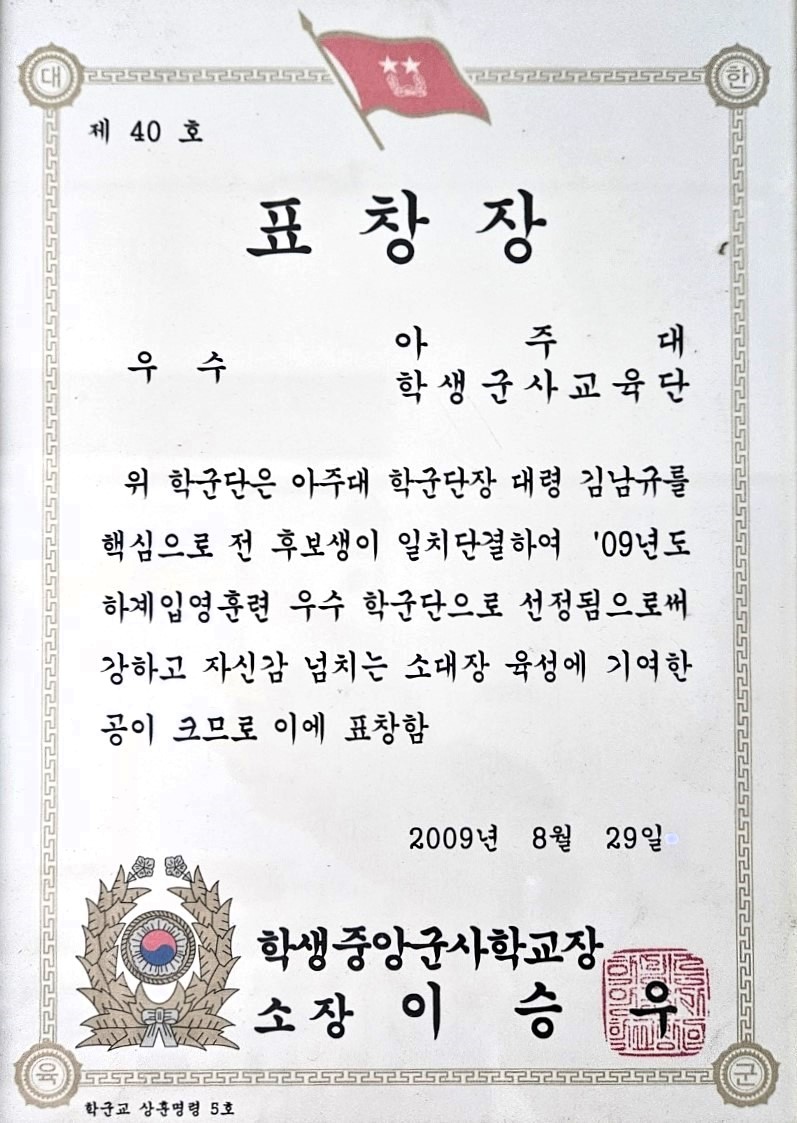 대 한
제 40 호
표 창 장
우 수
아 주 대
학생군사교육단
위 학군단은 아주대 학군단장 대령 김남규를
핵심으로 전 후보생이 일치단결하여 '09년도
하계입영훈련 우수 학군단으로 선정됨으로써
강하고 자신감 넘치는 소대장 육성에 기여한
공이 크므로 이에 표창함
2009년 8월 29일
학생중앙군사학교장
소장 이 승 우
육 군
학군교 상훈명령 5호